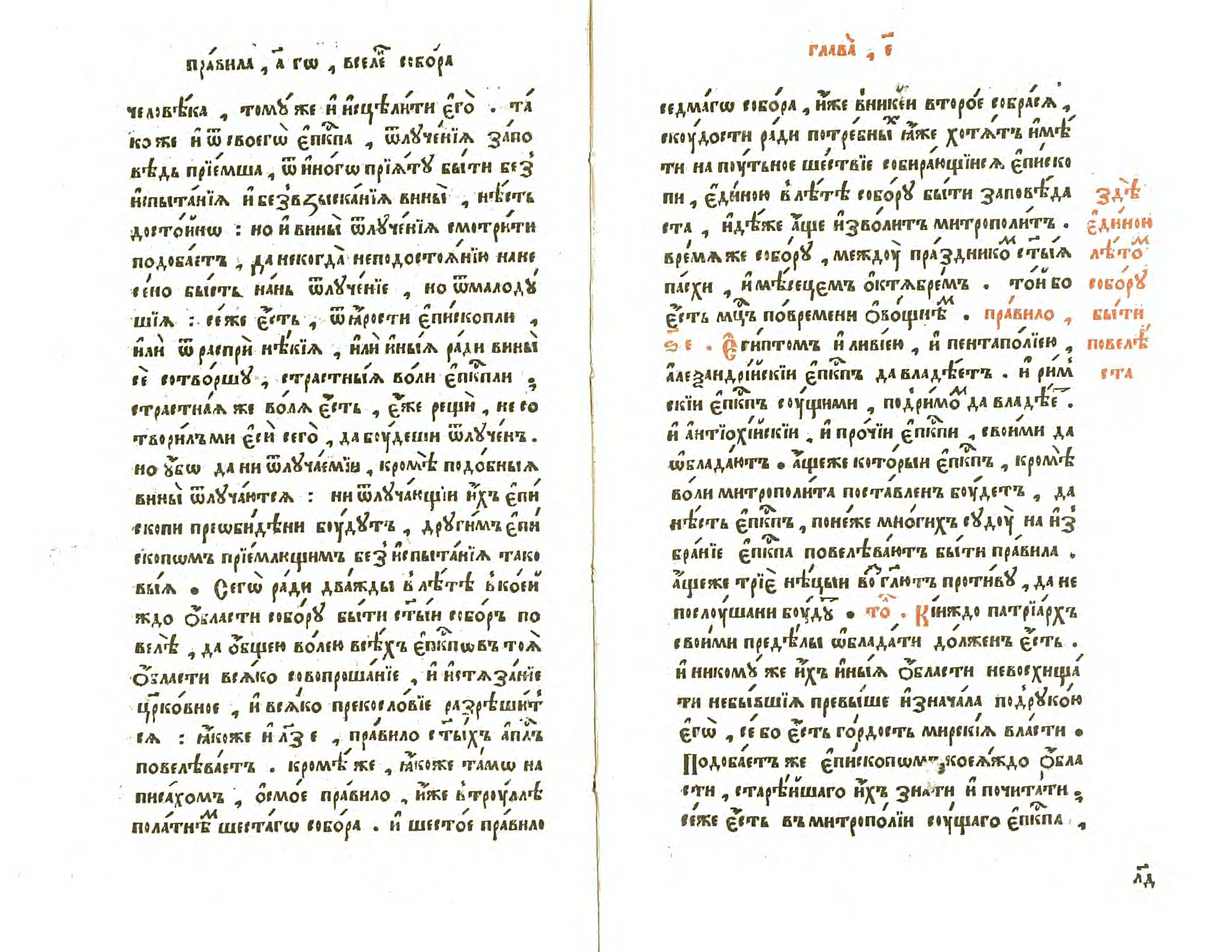 пра́вила , а҃ гѡ , вселе́н собо́ра
человѣ́ка , томꙋ́ же и҆ и҆сцѣли́ти є҆го̀ . та́
ко же и҆ ѿ своегѡ̀ є҆пⷭ҇кпа , ѿлꙋче́нїѧ запо
вѣдь прїе́мша , ѿ и҆но́гѡ прїѧ́тꙋ бы́ти без̾
и҆спыта́нїѧ и҆ безвзыска́нїѧ вины̀ , нѣ́сть
досто́йнѡ : но и҆ вины̀ ѿлꙋче́нїѧ смотри́ти
подоба́етъ , да некогда̀ неподостоѧ́нїю нане
сено̀ бы́сть на́нь ѿлꙋче́нїе , но ѿмалодꙋ́
шїѧ : се́же є҆́сть , ѿꙗ҆́рости є҆пи́скопли ,
и҆лѝ ѿ распрѝ нѣ́кїѧ , и҆лѝ и҆ны́ѧ ради вины̀
сѐ сотво́ршꙋ , стра́стныѧ во́ли є҆пⷭ҇кпли ,
стра́стнаѧ же во́лѧ є҆́сть , є҆́же рещѝ , не со
твори́лъ ми є҆сѝ сего̀ , да бꙋ́деши ѿлꙋче́нъ .
но ᲂу҆́бѡ да ни ѿлꙋча́емїи , кромѣ̀ подо́бныѧ
вины̀ ѿлꙋча́ютсѧ : ни ѿлꙋча́ющїи и҆́хъ є҆пи́
скопи преѡби́дѣни бꙋ́дꙋтъ , дрꙋги́мъ є҆пи́
скопѡмъ прїе́млющимъ без̾ и҆спыта́нїѧ тако
вы́ѧ . Сегѡ̀ ра́ди два́жды в лѣ́тѣ в ко́ей
ждо ѻ҆́бласти собо́рꙋ бы́ти ст҃ы́и собо́ръ по
велѣ̀ , да ѻ҆́бщею во́лею всѣ́хъ є҆пⷭ҇кпѡвъ тоѧ̀
ѻ҆́бласти всѧ́ко совопроша́нїе , и҆ и҆стѧза́нїе
цр҃ко́вное , и҆ всѧ́ко прекосло́вїе разрѣши́т
сѧ : ꙗ҆́коже и҆ л҃з е , пра́вило ст҃ы́хъ а҆пⷭ҇лъ
повелѣва́етъ . кромѣ́ же , ꙗ҆́коже та́мѡ на
писа́хомъ , ѻ҆смо́е пра́вило , и҆́же в трꙋ́ллѣ
пола́тнѣмъ шеста́гѡ собо́ра . и҆ шесто́е пра́вило
глава̀ , є҃
седма́гѡ собо́ра , и҆́же в нике́и второ́е собра́сѧ ,
скꙋ́дости ра́ди потре́бныхъ ꙗ҆̀же хотѧ́тъ и҆мѣ́
ти на пꙋ́тьное ше́ствїе собира́ющїисѧ є҆пи́ско
пи , є҆ди́ною в лѣ́тѣ собо́рꙋ бы́ти запове́да
ста , и҆дѣ́же а҆́ще и҆зво́литъ митрополи́тъ .
вре́мѧ же собо́рꙋ , междꙋ̀ пра́здникомъ ст҃ы́ѧ
па́схи , и҆ мѣ́сѧцемъ ѻ҆ктѧ́бремъ . то́й бо
є҆́сть мц҃ъ повре́мени ѻ҆во́щнѣмъ . пра́вило ,
ѕ҃ е . Є҆ги́птомъ и҆ ливі́ею , и҆ пентапо́лїею ,
а҆леѯандрі́йскїи є҆пⷭ҇кпъ да владѣ́етъ . и҆ ри́м
скїи є҆пⷭ҇кпъ сꙋ́щими , под̾ ри́момъ да владѣ́е .
и҆ а҆нтїохі́йскїи , и҆ про́чїи є҆пⷭ҇кпи , свои́ми да
ѡ҆блада́ютъ . а҆́щеже кото́рыи є҆пⷭ҇кпъ , кромѣ̀
во́ли митрополи́та поста́вленъ бꙋ́детъ , да
нѣ́сть є҆пⷭ҇кпъ , поне́же мно́гихъ сꙋдꙋ̀ на и҆з̾
бра́нїе є҆пⷭ҇кпа повелѣва́ютъ бы́ти пра́вила .
а҆́щеже трїѐ нѣ́цыи воз̾гл҃ютъ проти́вꙋ , да не
послꙋ́шани бꙋ́дꙋ . то́лк . Кі́иждо патрїа́рхъ
свои́ми предѣ́лы ѡ҆блада́ти до́лженъ є҆́сть .
и҆ никомꙋ́ же и҆́хъ и҆ны́ѧ ѻ҆́бласти невосхища́
ти небы́вшїѧ превы́ше и҆знача́ла под̾ рꙋко́ю
є҆гѡ̀ , се́ бо є҆́сть го́рдость мирскі́ѧ вла́сти .
Подоба́етъ же є҆пи́скопѡмъ коеѧ́ждо ѻ҆́бла
сти , старѣ́йшаго и҆́хъ зна́ти и҆ почита́ти ,
се́же є҆́сть въ митропо́лїи сꙋ́щаго є҆пⷭ҇кпа ,
здѣ̀
є҆ди́ною
лѣ́томъ
собо́рꙋ
бы́ти
повелѣ̀
ста
л҃д